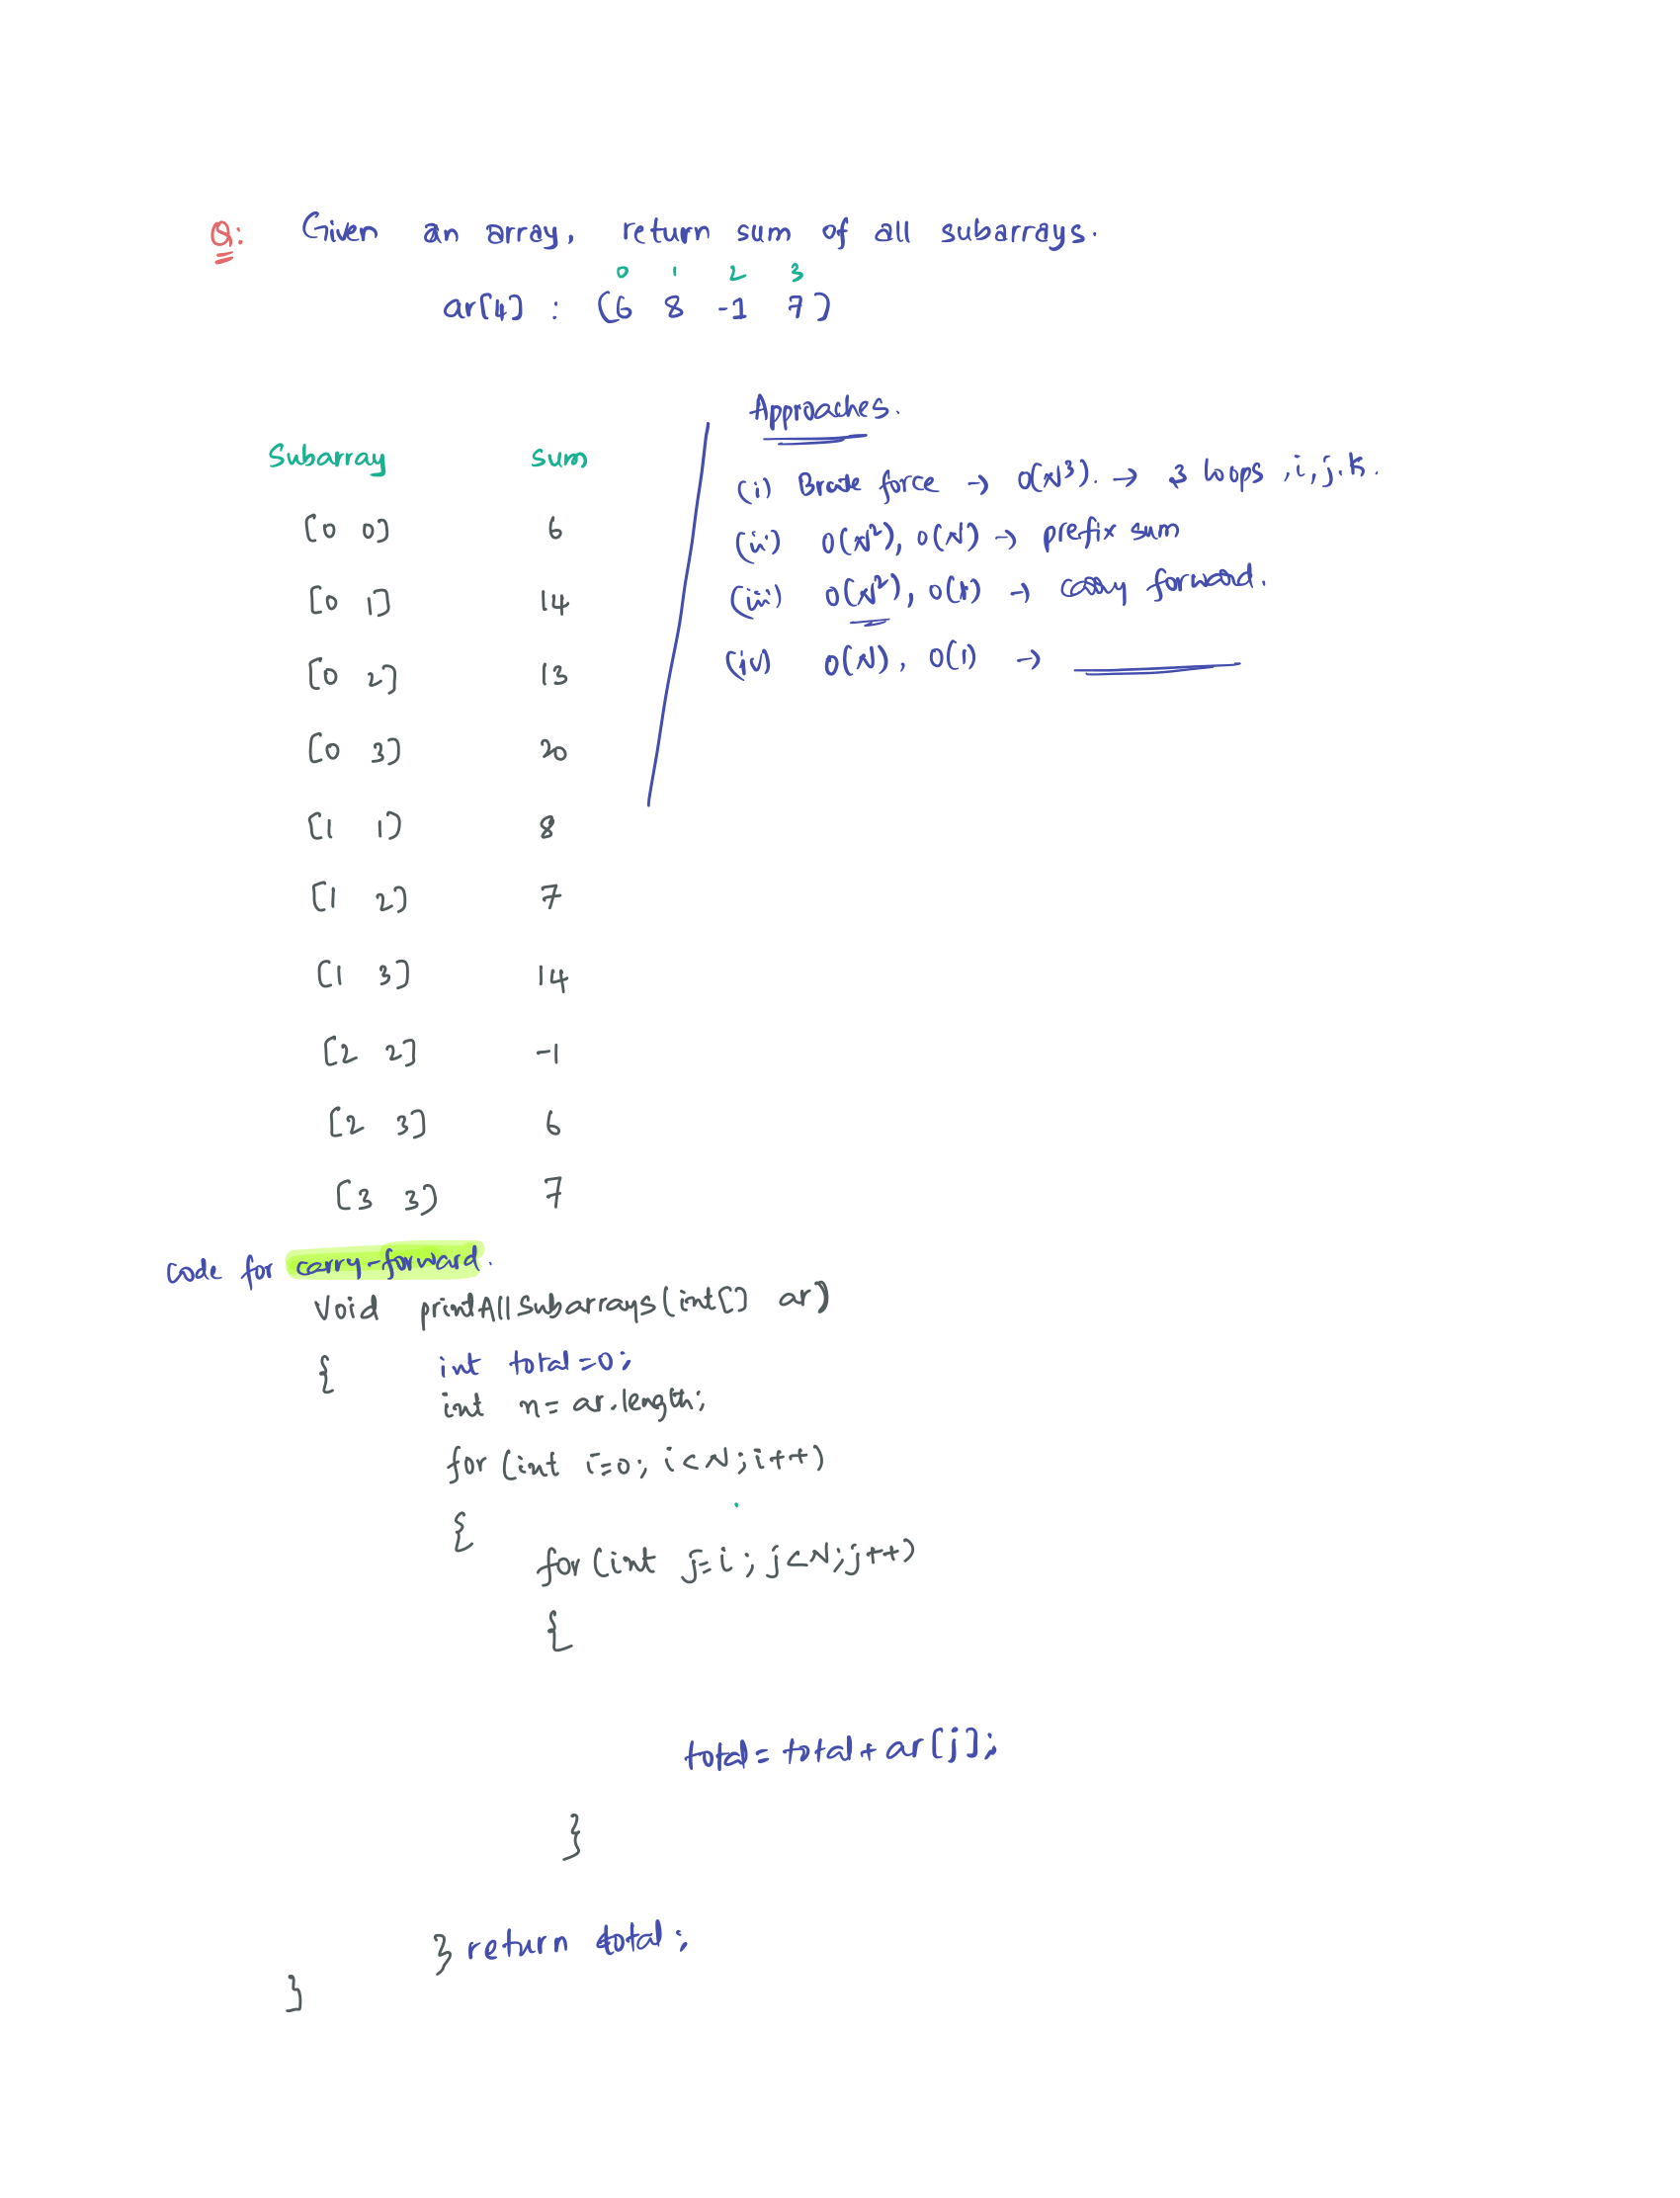 Q: Given an array, return sum of all subarrays.
0 1 2 3
ar[4] : (6 8 -1 7)
Subarray sum
[0 0] 6
[0 1] 14
[0 2] 13
[0 3] 20
[1 1] 8
[1 2] 7
[1 3] 14
[2 2] -1
[2 3] 6
[3 3) 7
Approaches.
(i) Brute force → O(N³). → 3 loops, i, j, k.
(ii) O(N²), O(N) → prefix sum
(iii) O(N²), O(1) → carry forward.
(iv) O(N), O(1) →
code for carry-forward.
Void printAllSubarrays(int[] ar)
{ int total=0;
int n= ar.length;
for (int i=0; i<N; i++)
{
for (int j=i; j<N; j++)
{
total = total + ar[j];
}
} return total;
}